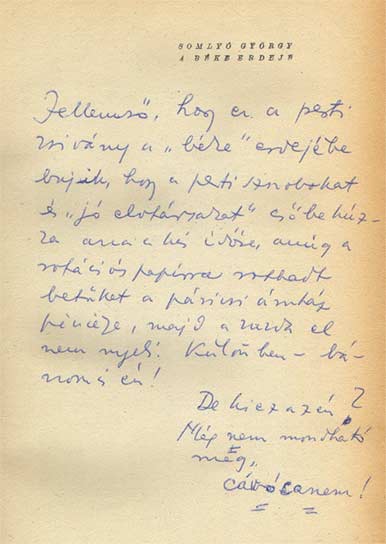 SOMLYÓ GYÖRGY
A BÉKE ERDEJE
Jellemző, hogy ez a pesti
zsivány a „béke” erdejébe
bujik, hogy a pesti sznobokat
és „jó elvtársakat” csőbe húz-
za arra a kis időre, amíg a
rotációs papírra rothadt
betűket a párizsi
pincéze, majd a                 el
nem nyeli. Különben – bá-
nom is én!
De ki ez az én?
Még nem mondható
meg,
cávócanem!